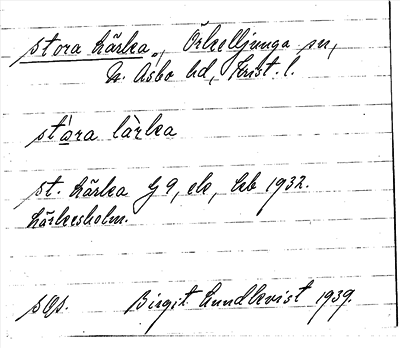 stora Lärka, Örkelljunga sn,
N. Åsbo hd, Krist. l.
stora làrka
st. Lärka J 9, ek, kb 1932.
Lärkesholm.
sgs. Birgit Lundkvist 1939.